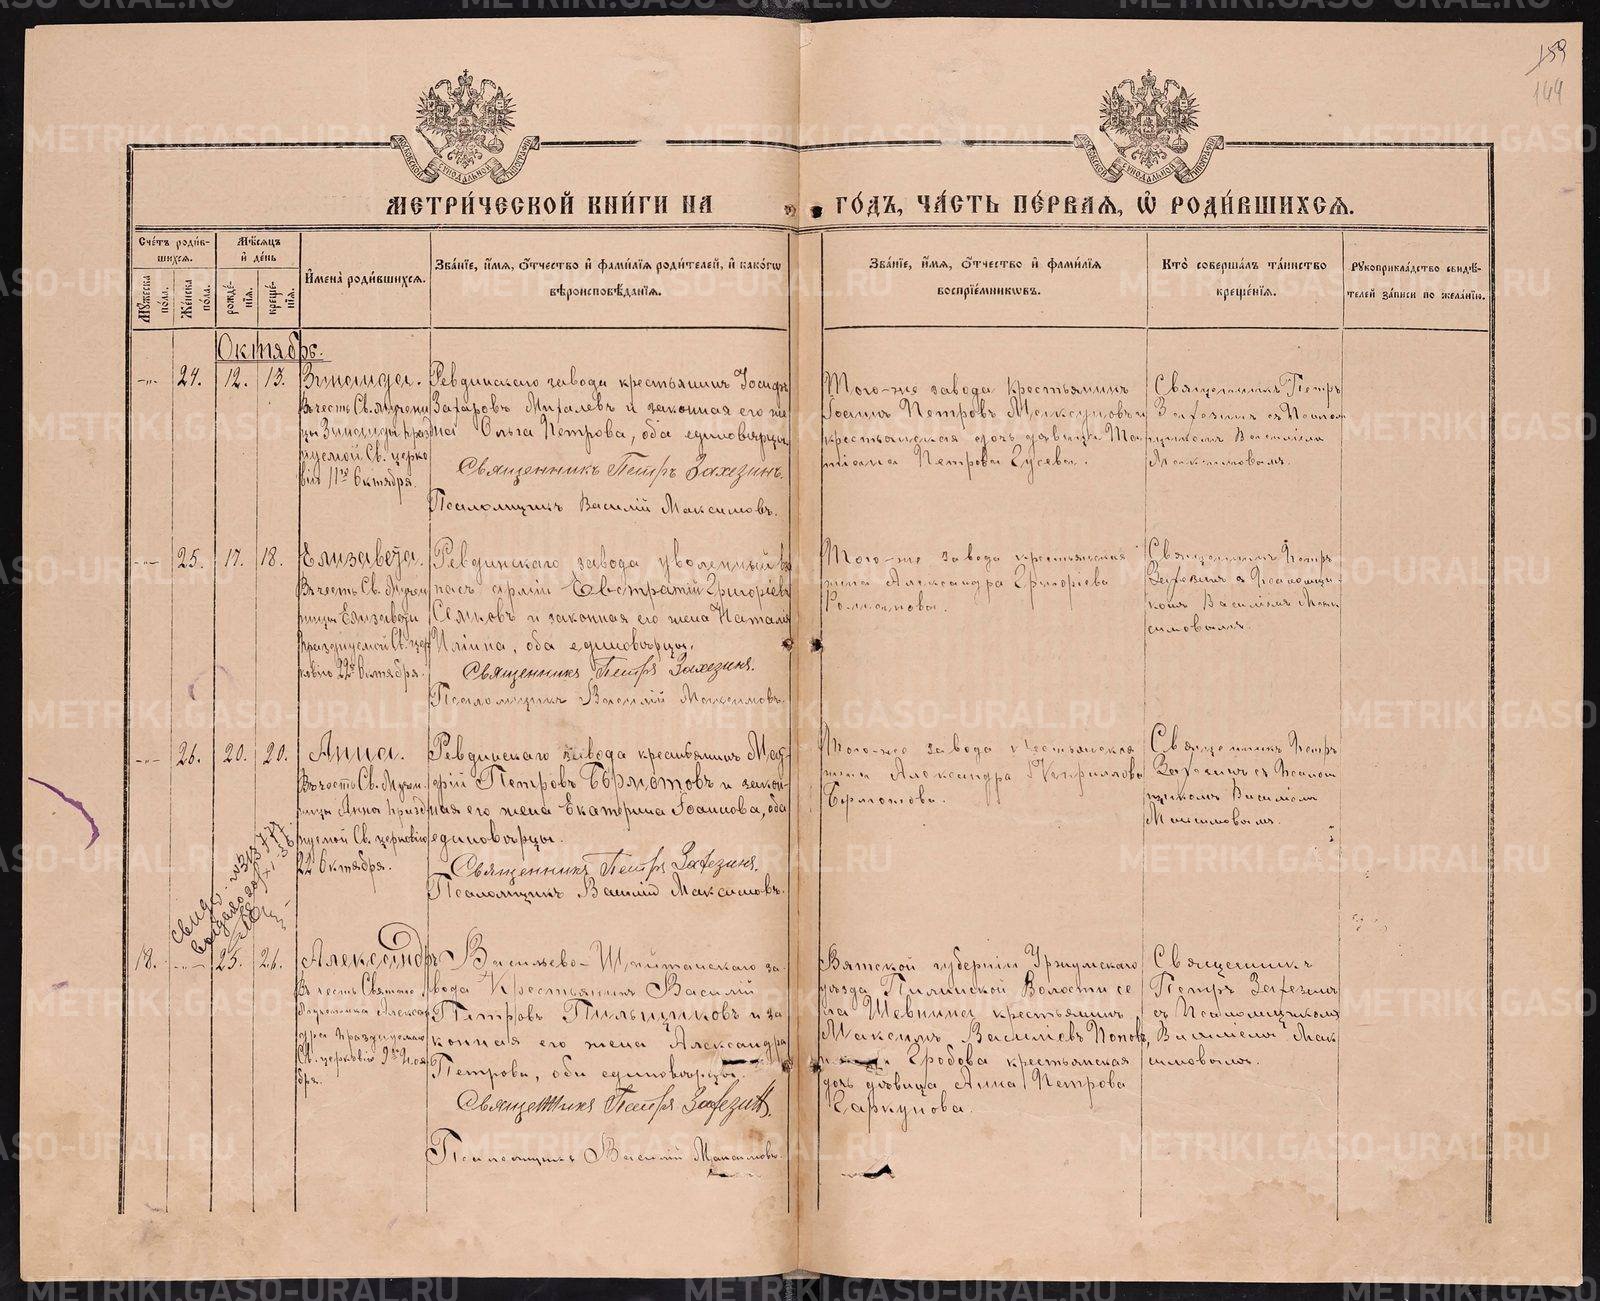 159
144
МОСКОВСКОЙ СѴНОДАЛЬНОЙ ТИПОГРАФІИ
МОСКОВСКОЙ СѴНОДАЛЬНОЙ ТИПОГРАФІИ
МЕТРИ́ЧЕСКОЙ КНИ́ГИ НА
ГО́ДЪ, ЧА́СТЬ ПЕ́РВАѦ, Ѡ҆ РОДИ́ВШИХСѦ.
Сче́тъ роди́в-
шихсѧ.
Мѣ́сѧцъ
и҆ де́нь
Мꙋ́жеска
по́ла.
Же́нска
по́ла.
рожде́-
нїѧ.
креще́-
нїѧ.
И҆мена̀ роди́вшихсѧ.
Зва́нїе, и҆́мѧ, ѻ҆́тчество и҆ фами́лїѧ роди́телей, и҆ како́гѡ
вѣроисповѣ́данїѧ.
Зва́нїе, и҆́мѧ, ѻ҆́тчество и҆ фами́лїѧ
воспрїе́мникѡвъ.
Кто̀ соверша́лъ та́инство
креще́нїѧ.
Рꙋкоприкла́дство свидѣ́-
телей за́писи по жела́нїю.
Октябрь.
24. 12. 13. Зинаида.
Въ честь Св. Мучени
цы Зинаиды празд
нуемой Св. церко
вію 11го Октября.
Ревдинскаго завода крестьянинъ Іосифъ
Захаровъ Михалевъ и законная его же
на Ольга Петрова, оба единовѣрцы
Священникъ Петръ Захезинъ.
Псаломщикъ Василій Максимовъ.
Того-же завода крестьянинъ
Іоаннъ Петровъ Моксуновъ и
крестьянская дочь дѣвица Та
тіана Петрова Гусева.
Священникъ Петръ
Захезинъ съ Псалом
щикомъ Василіемъ
Максимовымъ.
25. 17. 18. Елизавета.
Въ честь Св. Мучен
ницы Елизаветы
празднуемой Св. цер
ковію 22го Октября.
Ревдинскаго завода уволенный въ за
пасъ арміи Евстратій Григоріевъ
Семковъ и законная его жена Наталія
Иліина, оба единовѣрцы.
Священникъ Петръ Захезинъ.
Псаломщикъ Василій Максимовъ.
Того-же завода крестьянская
жена Александра Григоріева
Романова.
Священникъ Петръ
Захезинъ съ Псаломщи-
комъ Василіемъ Мак
симовымъ.
26. 20. 20. Анна.
Въ честь Св. Мучен
ницы Анны празд
нуемой Св. церковію
22го Октября.
Ревдинскаго завода крестьянинъ Мат-
фій Петровъ Бормотовъ и закон-
ная его жена Екатерина Іоаннова, оба
единовѣрцы.
Священникъ Петръ Захезинъ.
Псаломщикъ Василій Максимовъ.
Того-же завода крестьянская
жена Александра Кириллова
Бормотова.
Священникъ Петръ
Захезинъ съ Псалом
щикомъ Василіемъ
Максимовымъ.
18. 25. 26. Александръ
Въ честь Святаго
Мученика Алексан
дра празднуемаго
Св. церковію 9го Ноя
бря.
Васильево-Шайтанскаго за
вода Крестьянинъ Василій
Петровъ Пильщиковъ и за
конная его жена Александра
Петрова, оба единовѣрцы.
Священникъ Петръ Захезинъ.
Псаломщикъ Василій Максимовъ.
Вятской губерніи Уржумскаго
уѣзда Пилинской Волости се
ла Шевнина крестьянинъ
Максимъ Василіевъ Поповъ
Гробова крестьянская
дочь дѣвица Анна Петрова
Гаркунова.
Священникъ
Петръ Захезинъ
съ Псаломщикомъ
Василіемъ Мак
симовымъ.
METRIKI.GASO-URAL.RU